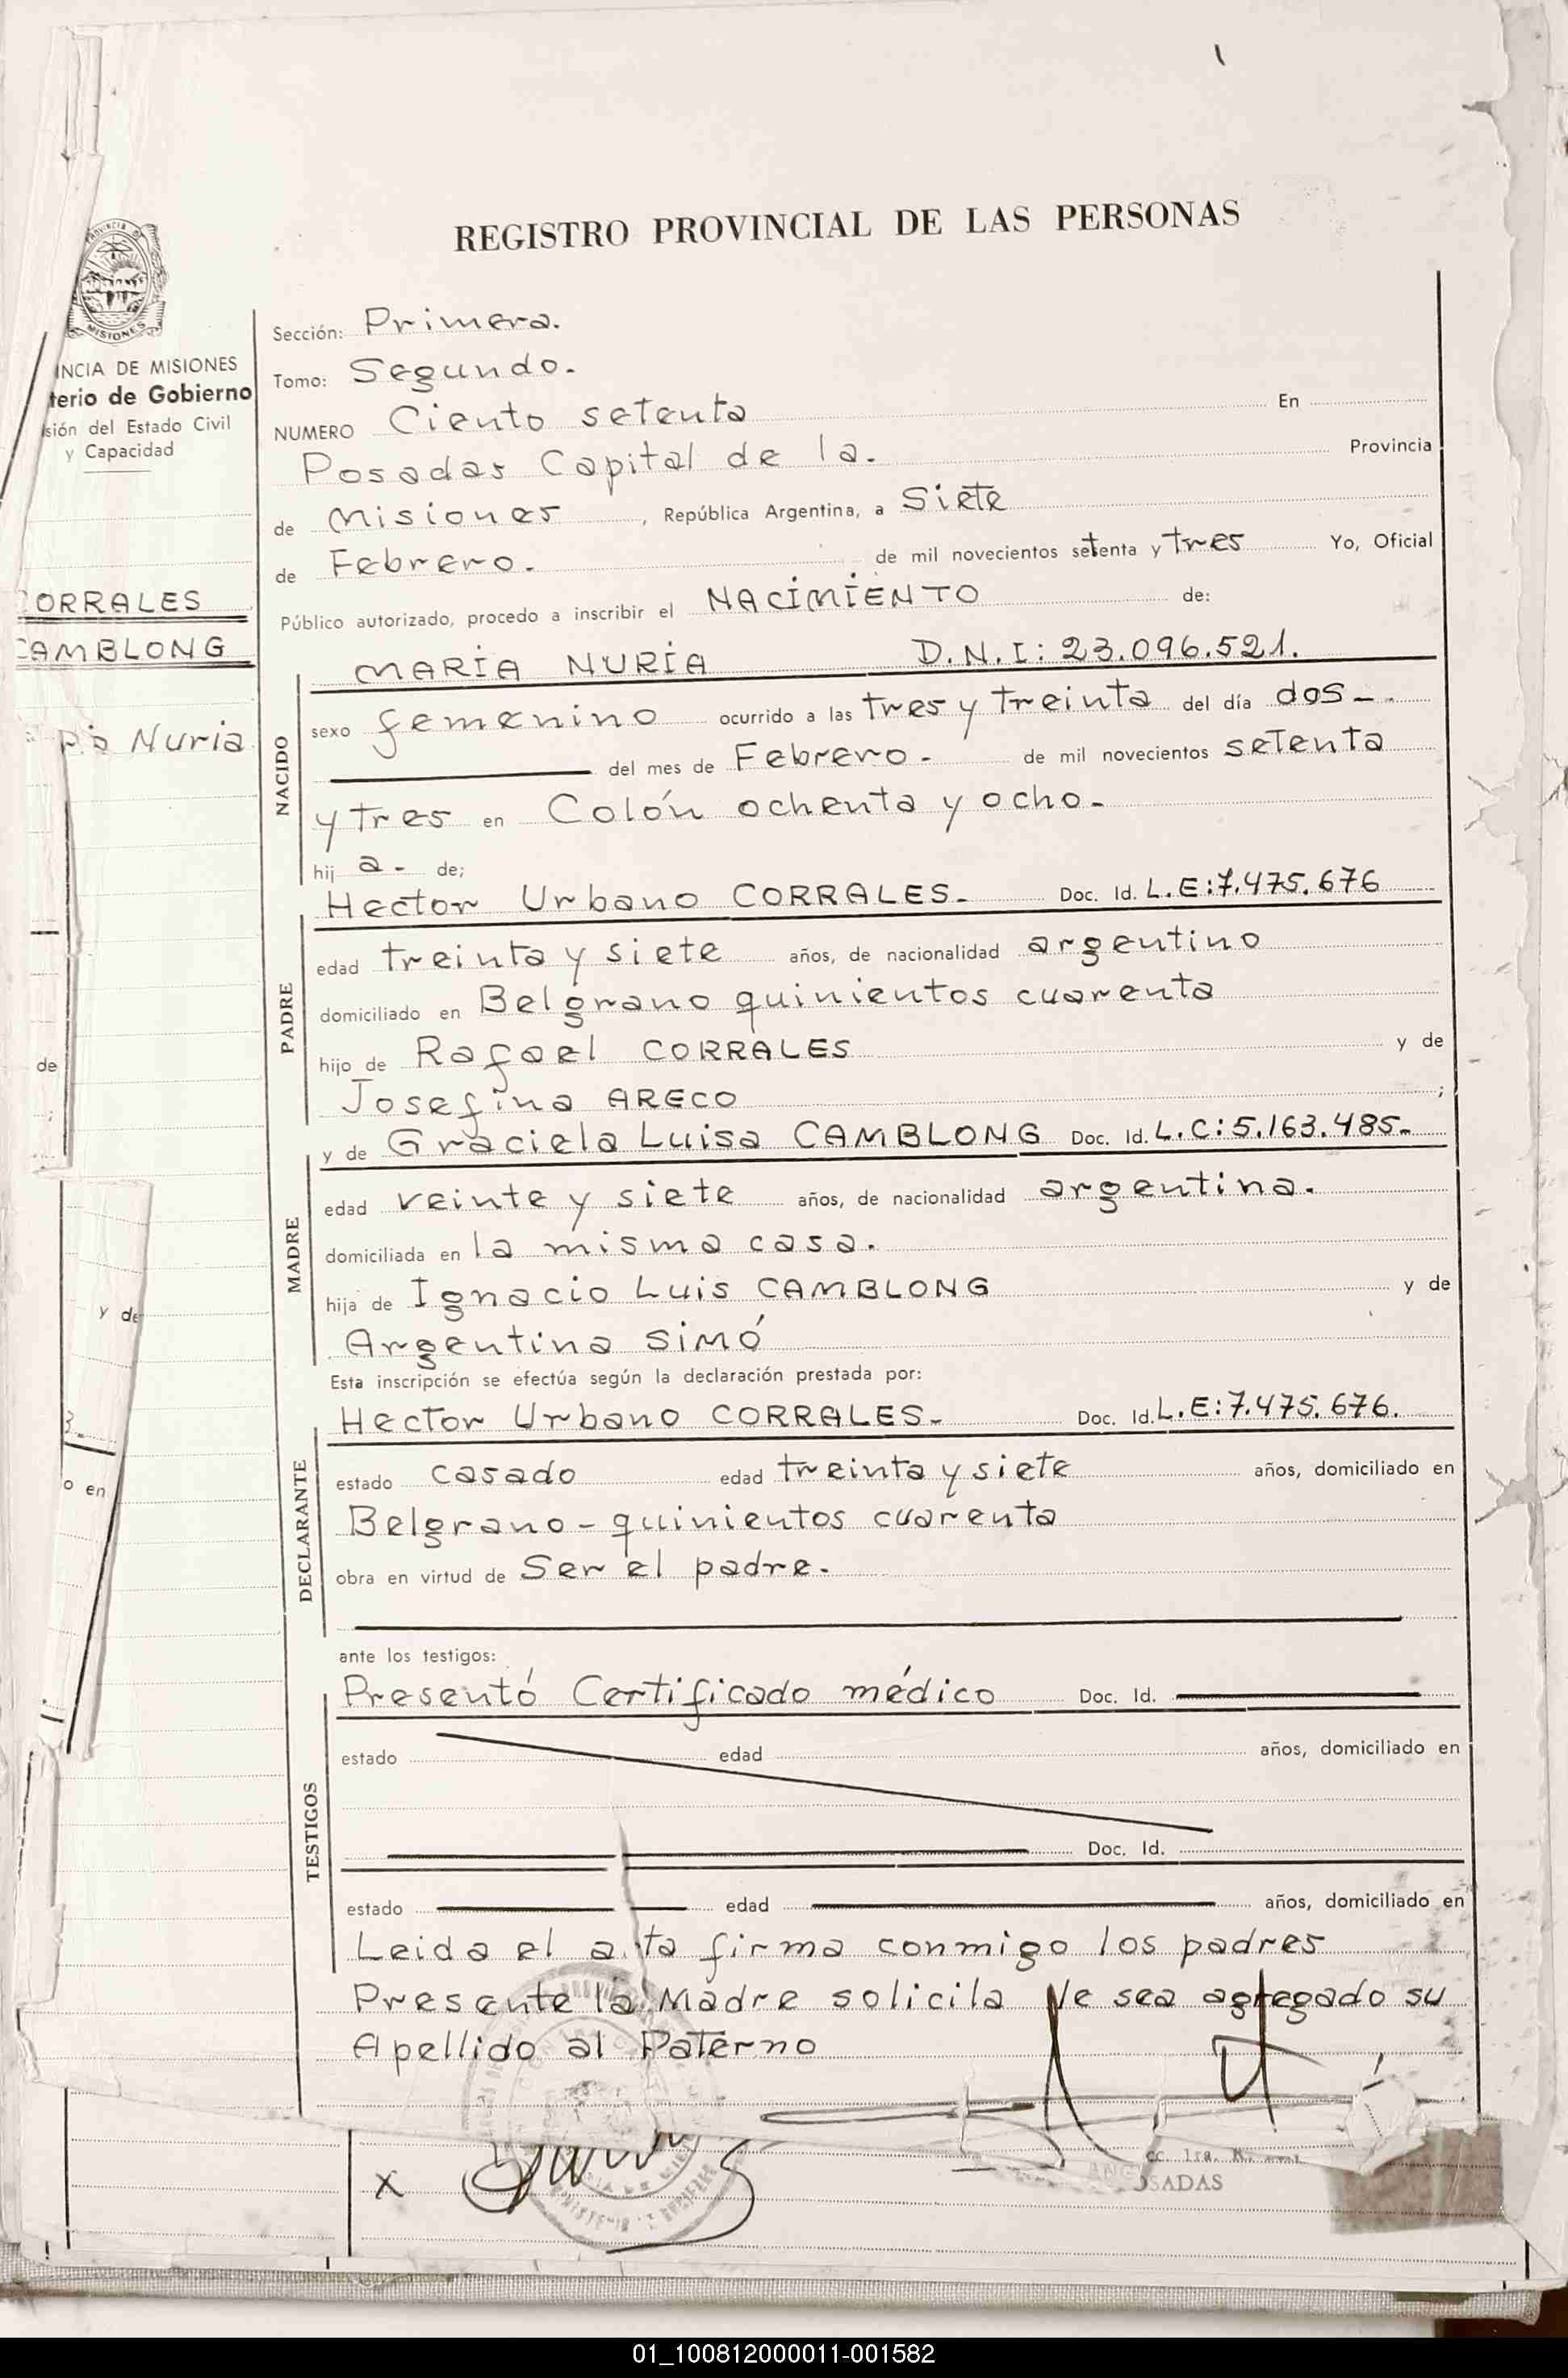 REGISTRO PROVINCIAL DE LAS PERSONAS
PROVINCIA DE
MISIONES
INCIA DE MISIONES
terio de Gobierno
sión del Estado Civil
y Capacidad
CORRALES
CAMBLONG
Nuria
de
;
y de
3.
o en
Sección: Primera.
Tomo: Segundo.
NUMERO Ciento setenta En
Posadas Capital de la. Provincia
de Misiones, República Argentina, a Siete
de Febrero. de mil novecientos setenta y tres Yo, Oficial
Público autorizado, procedo a inscribir el NACIMIENTO de:
MARIA NURIA D.N.I: 23.096.521.
NACIDO
sexo femenino ocurrido a las tres y treinta del día dos-.
del mes de Febrero. de mil novecientos setenta
y tres en Colón ochenta y ocho-
hij a. de;
Hector Urbano CORRALES- Doc. Id. L.E:7.475.676
PADRE
edad treinta y siete años, de nacionalidad argentino
domiciliado en Belgrano quinientos cuarenta
hijo de Rafael CORRALES y de
Josefina ARECO ;
y de Graciela Luisa CAMBLONG Doc. Id. L.C:5.163.485-
MADRE
edad veinte y siete años, de nacionalidad argentina.
domiciliada en la misma casa.
hija de Ignacio Luis CAMBLONG y de
Argentina SIMÓ
Esta inscripción se efectúa según la declaración prestada por:
Hector Urbano CORRALES- Doc. Id. L.E:7.475.676.
DECLARANTE
estado casado edad treinta y siete años, domiciliado en
Belgrano-quinientos cuarenta
obra en virtud de Ser el padre.
ante los testigos:
Presentó Certificado médico Doc. Id.
TESTIGOS
estado edad años, domiciliado en
Doc. Id.
estado edad años, domiciliado en
Leida el a ta firma conmigo los padres
Presente la Madre solicita le sea agregado su
Apellido al Paterno
X
SADAS
01_100812000011-001582